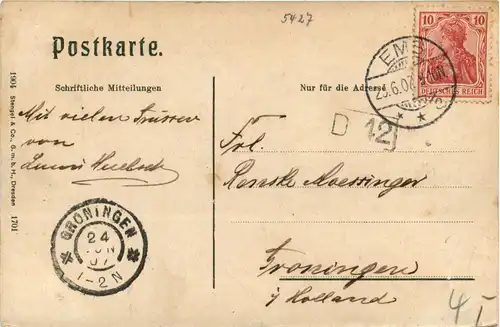 5427
Postkarte.
10 10
DEUTSCHES REICH
EMS
23.6.07
D 12
Schriftliche Mitteilungen
Nur für die Adresse
Mit vielen Grüssen
von
Frl.
Groningen
i/ Holland
GRONINGEN
24
JUN
07
1-2N
4
1904 Stengel & Co., G. m. b. H., Dresden 1701